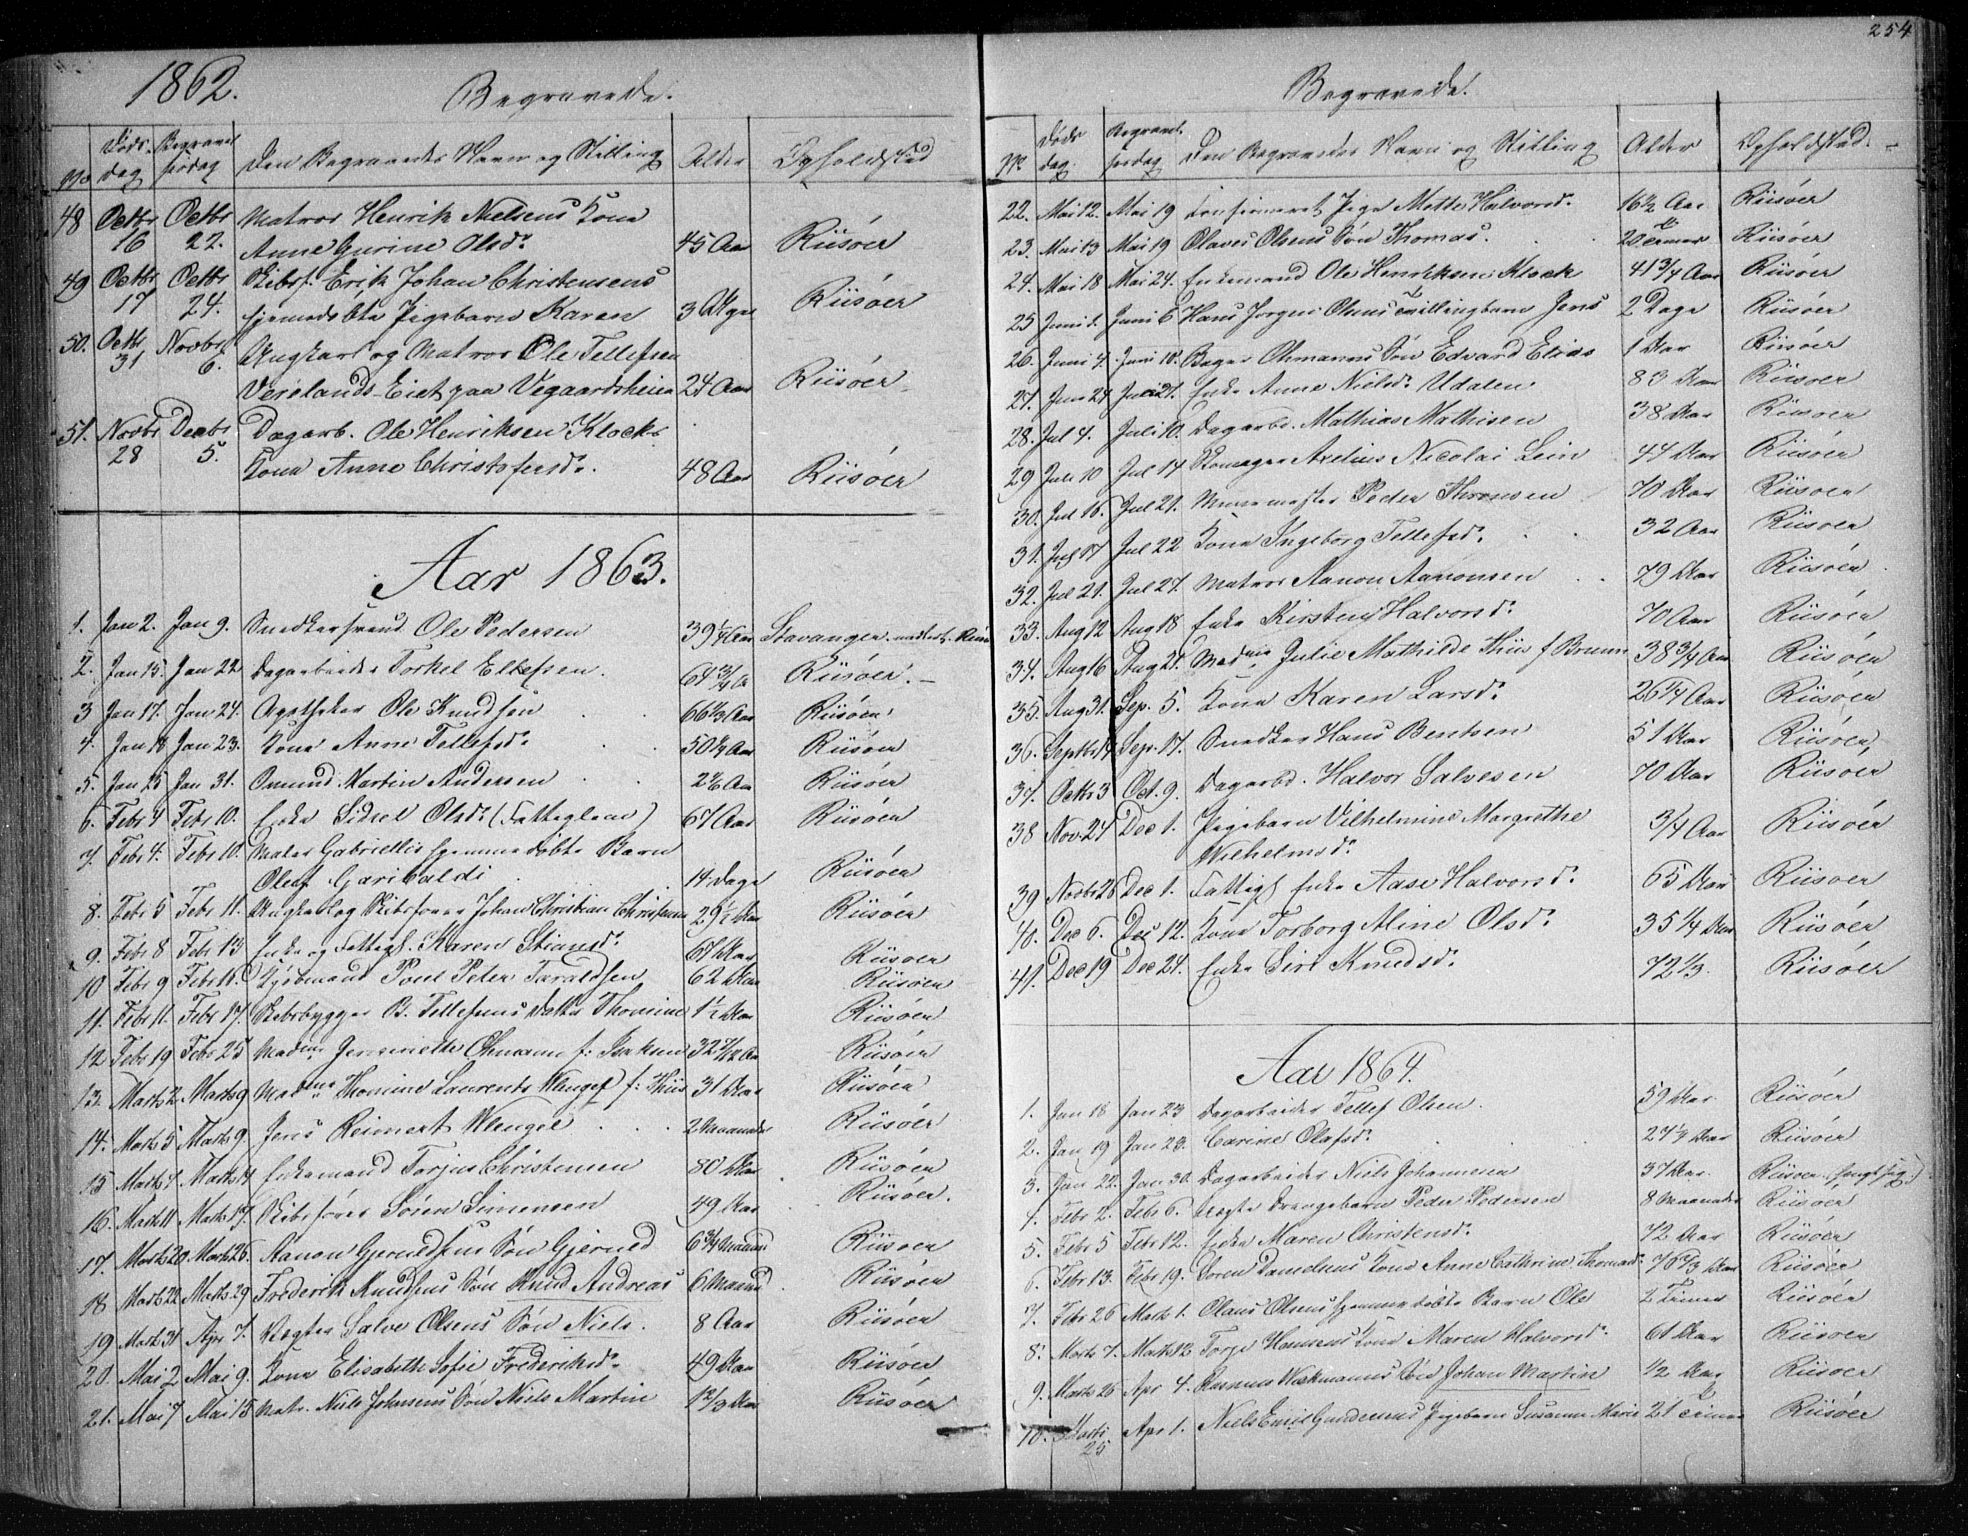 254
1862.
Begravede.
No Døds-dag Begravelsesdag Den Begravedes Navn og Stilling Alder Opholdsted
48 Octbr 16 Octbr 22. Matros Henrik Nielsens Kone
Anne Gurine Olsdr 45 Aar Riisøer
49 Octbr 17 Octbr 24. Skibsf. Erik Johan Christensens
hjemmedøbte Pigebarn Karen 3 Uger Riisøer
50. Octbr 31 Novbr 6. Ungkarl og Matros Ole Tellefsen
Verelands-Eiet paa Vegaardsheien 24 Aar Riisøer
51. Novbr 28 Decbr 5. Dagarb. Ole Henriksen Klocks
Kone Anne Christofersdr. 48 Aar Riisøer
Aar 1863.
1. Jan 2. Jan 9. Snedkersvend Ole Pedersen 39 1/4 Aar Stavanger
2. Jan 15. Jan 22 Dagarbeider Torkel Ellefsen. 64 3/4 A Riisøer.
3 Jan 17. Jan 24. Apotheker Ole Knudsen 66 1/3 Aar Riisøer
4. Jan 18 Jan 23. Kone Anne Tellefsdr 50 1/4 Aar Riisøer
5. Jan 25 Jan 31. Omund Martin Andersen Aar Riisøer
6. Febr 4 Febr 10. Enke Sidsel Olsdr (Fattiglem) 67 Aar Riisøer
7. Febr 4. Febr 10. Maler Gabriellis hjemmedøbte Barn
Oluf Garibaldi 14 Dage Riisøer
8. Febr 5 Febr 11. Ungkarl og Skibsfører Johan Christian Christensen 29 1/2 Aar Riisøer
9. Febr 8 Febr 13 Enke og Fattigl. Karen Stiansdr. 67 Aar Riisøer
10 Febr 9 Febr 16. Kjøbmand Poul Peter Taraldsen 62 Aar Riisøer
11. Febr 11. Febr 17. Skibsbygger B. Tellefsens Datter Thomine 1 1/2 Aar Riisøer
12 Febr 19 Febr 25 Madme Jensinette Ohmann f: Isaksen 32 Aar Riisøer
13. Marts 2 Marts 9 Madme Thomine Laurentz Wengel f: Thiis 31 Aar Riisøer
14. Marts 5 Marts 9. Jens Reimert Wengel 2 Maaneder Riisøer
15 Marts 7 Marts 14 Enkemand Torjus Christensen 80 Aar Riisøer
16. Marts 11 Marts 17. Skibsfører Søren Simonsen 49 Aar Riisøer.
17. Marts 20 Marts 26. Aanon Gjeruldsens Søn Gjeruld 6 3/4 Maaned Riisøer
18 Marts 22 Marts 29 Frederik Knudsens Søn Knud Andreas 6 Maaned Riisøer
19 Marts 31 Apr 7. Vægter Salve Olsens Søn Niels. 8 Aar Riisøer
20. Mai 2 Mai 9. Kone Elisabeth Sofie Frederiksdr 49 Aar Riisøer
21. Mai 7 Mai 15 Matr. Niels Johnsens Søn Niels Martin 1 2/3 Aar Riisøer
Begravede.
No Døds dag. Begravelsesdag Den Begravedes Navn og Stilling Alder Opholdsted.
22. Mai 12. Mai 19 Confirmeret Pige Mette Halvorsdr 16 1/2 Aar Riisøer
23. Mai 13 Mai 19 Olaves Olsens Søn Thomas. Riisøer
24. Mai 18 Mai 24. Enkemand Ole Henriksen Klock 41 3/4 Aar Riisøer
25 Juni 1. Juni 6 Hans Jørgen Olsens Tvillingbarn Jens 2 Dage Riisøer
26. Juni 4. Juni 10. Bager Ohmanns Søn Edvard Elias 1 Aar Riisøer
27. Enke Anne Nielsdr Udalen 83 Aar Riisøer
28. Jul 4. Juli 10. Dagarbd. Mathias Mathisen 38 Aar Riisøer
29 Juli 10 Jul 17 Skomager Axelius Nicolai Lein 44 Aar Riisøer
30. Jul 16. Jul 21. Muurmester Peder Thronsen 70 Aar Riisøer
31. Jul 17 Jul 22 Kone Ingeborg Tellefsdr. 32 Aar Riisøer
32. Jul 21. Jul 27. Matros Aanon Aanonsen 79 Aar Riisøer
33. Aug 12 Aug 18 Enke Kirsten Halvorsdr 70 Aar Riisøer
34. Aug 16 Aug 21. Madme Julie Mathilde Thiis f. Bruun 38 3/4 Aar Riisøer
35. Aug 31. Sep. 5. Kone Karen Larsdr 26 1/4 Aar Riisøer
36. Septbr 14 Sep. 17. Snedker Hans Bentsen 51 Aar Riisøer
37. Octbr 3 Oct. 9. Dagarbd. Halvor Salvesen 70 Aar Riisøer
38 Nov. 27 Dec 1. Pigebarn Vilhelmine Margrethe
Wilhelmsdr 3/4 Aar Riisøer
39 Novbr 26 Dec 1. Fattigl. Enke Aase Halvorsdr. 65 Aar Riisøer
40. Dec 6. Dec 12. Kone Torborg Aline Olsdr 35 1/4 Aar Riisøer
41. Dec 19 Dec 24. Enke Siri Knudsdr 72 1/3. Riisøer
Aar 1864.
1. Jan 18 Jan 23 Dagarbeider Tellef Olsen. 59 Aar. Riisøer
2. Jan 19 Jan 23. Carine Olafsdr. 27 1/3 Aar Riisøer
3. Jan 22. Jan 30. Dagarbeider Niels Johannesen 37 Aar. Riisøer
4. Febr 2. Febr 6. Uægte Drengebarn Peder Pedersen 8 Maaneder Riisøer
5. Febr 5 Febr 12. Enke Maren Christensdr 72 Aar Riisøer
6. Febr 13. Febr 19. Søren Danielsens Kone Anne Cathrine Thomasdr 76 2/3 Aar Riisøer
7. Febr 26 Marts 1. Olaus Olsens hjemmedøbte Barn Ole 2 Timer Riisøer
8. Marts 7. Marts 12 Torje Hansens Kone Maren Halvorsdr. 61 Aar Riisøer
9. Marts 26 Apr 4. Rasmus Wekmanns Søn Johan Martin 1/2 Aar Riisøer
10. Marts 25 Apr 1. Niels Emil Gundersens Pigebarn Susanne Marie 21 Timer Riisøer